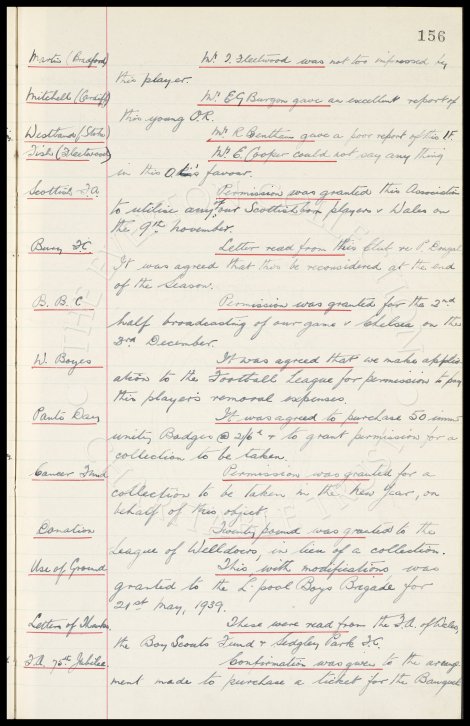 156
Martin (Bradford) Mr. J. Fleetwood was not too impressed by
this player.
Mitchell (Cardiff) Mr. E.G. Burgon gave an excellent report of
this young O.R.
Westland (Stoke) Mr. R. Bentham gave a poor report of this I.F.
Fish (Fleetwood) Mr. E. Cooper could not say any thing
in this O. favour.
Scottish F.A. Permission was granted this Association
to utilise any four Scottish born players v Wales on
the 9th November.
Bury F.C. Letter read from this Club re
It was agreed that this be reconsidered at the end
of the Season.
B.B.C. Permission was granted for the 2nd
half broadcasting of our game v Chelsea on the
3rd December.
W. Boyes It was agreed that we make applic-
ation to the Football League for permission to pay
this player's removal expenses.
Panto Day It was agreed to purchase 50
Badges @ 2/6d + to grant permission for a
collection to be taken.
Cancer Fund Permission was granted for a
collection to be taken in the New Year, on
behalf of this object.
Donation Twenty pound was granted to the
League of Welldoers, in lieu of a collection.
Use of Ground This with modifications was
granted to the L'pool Boys Brigade for
21st May, 1939.
Letters of Thanks These were read from the F.A. of Wales,
the Boy Scouts Fund + Sedgley Park F.C.
F.A. 75th Jubilee Confirmation was given to the arrange-
ment made to purchase a ticket for the Banquet